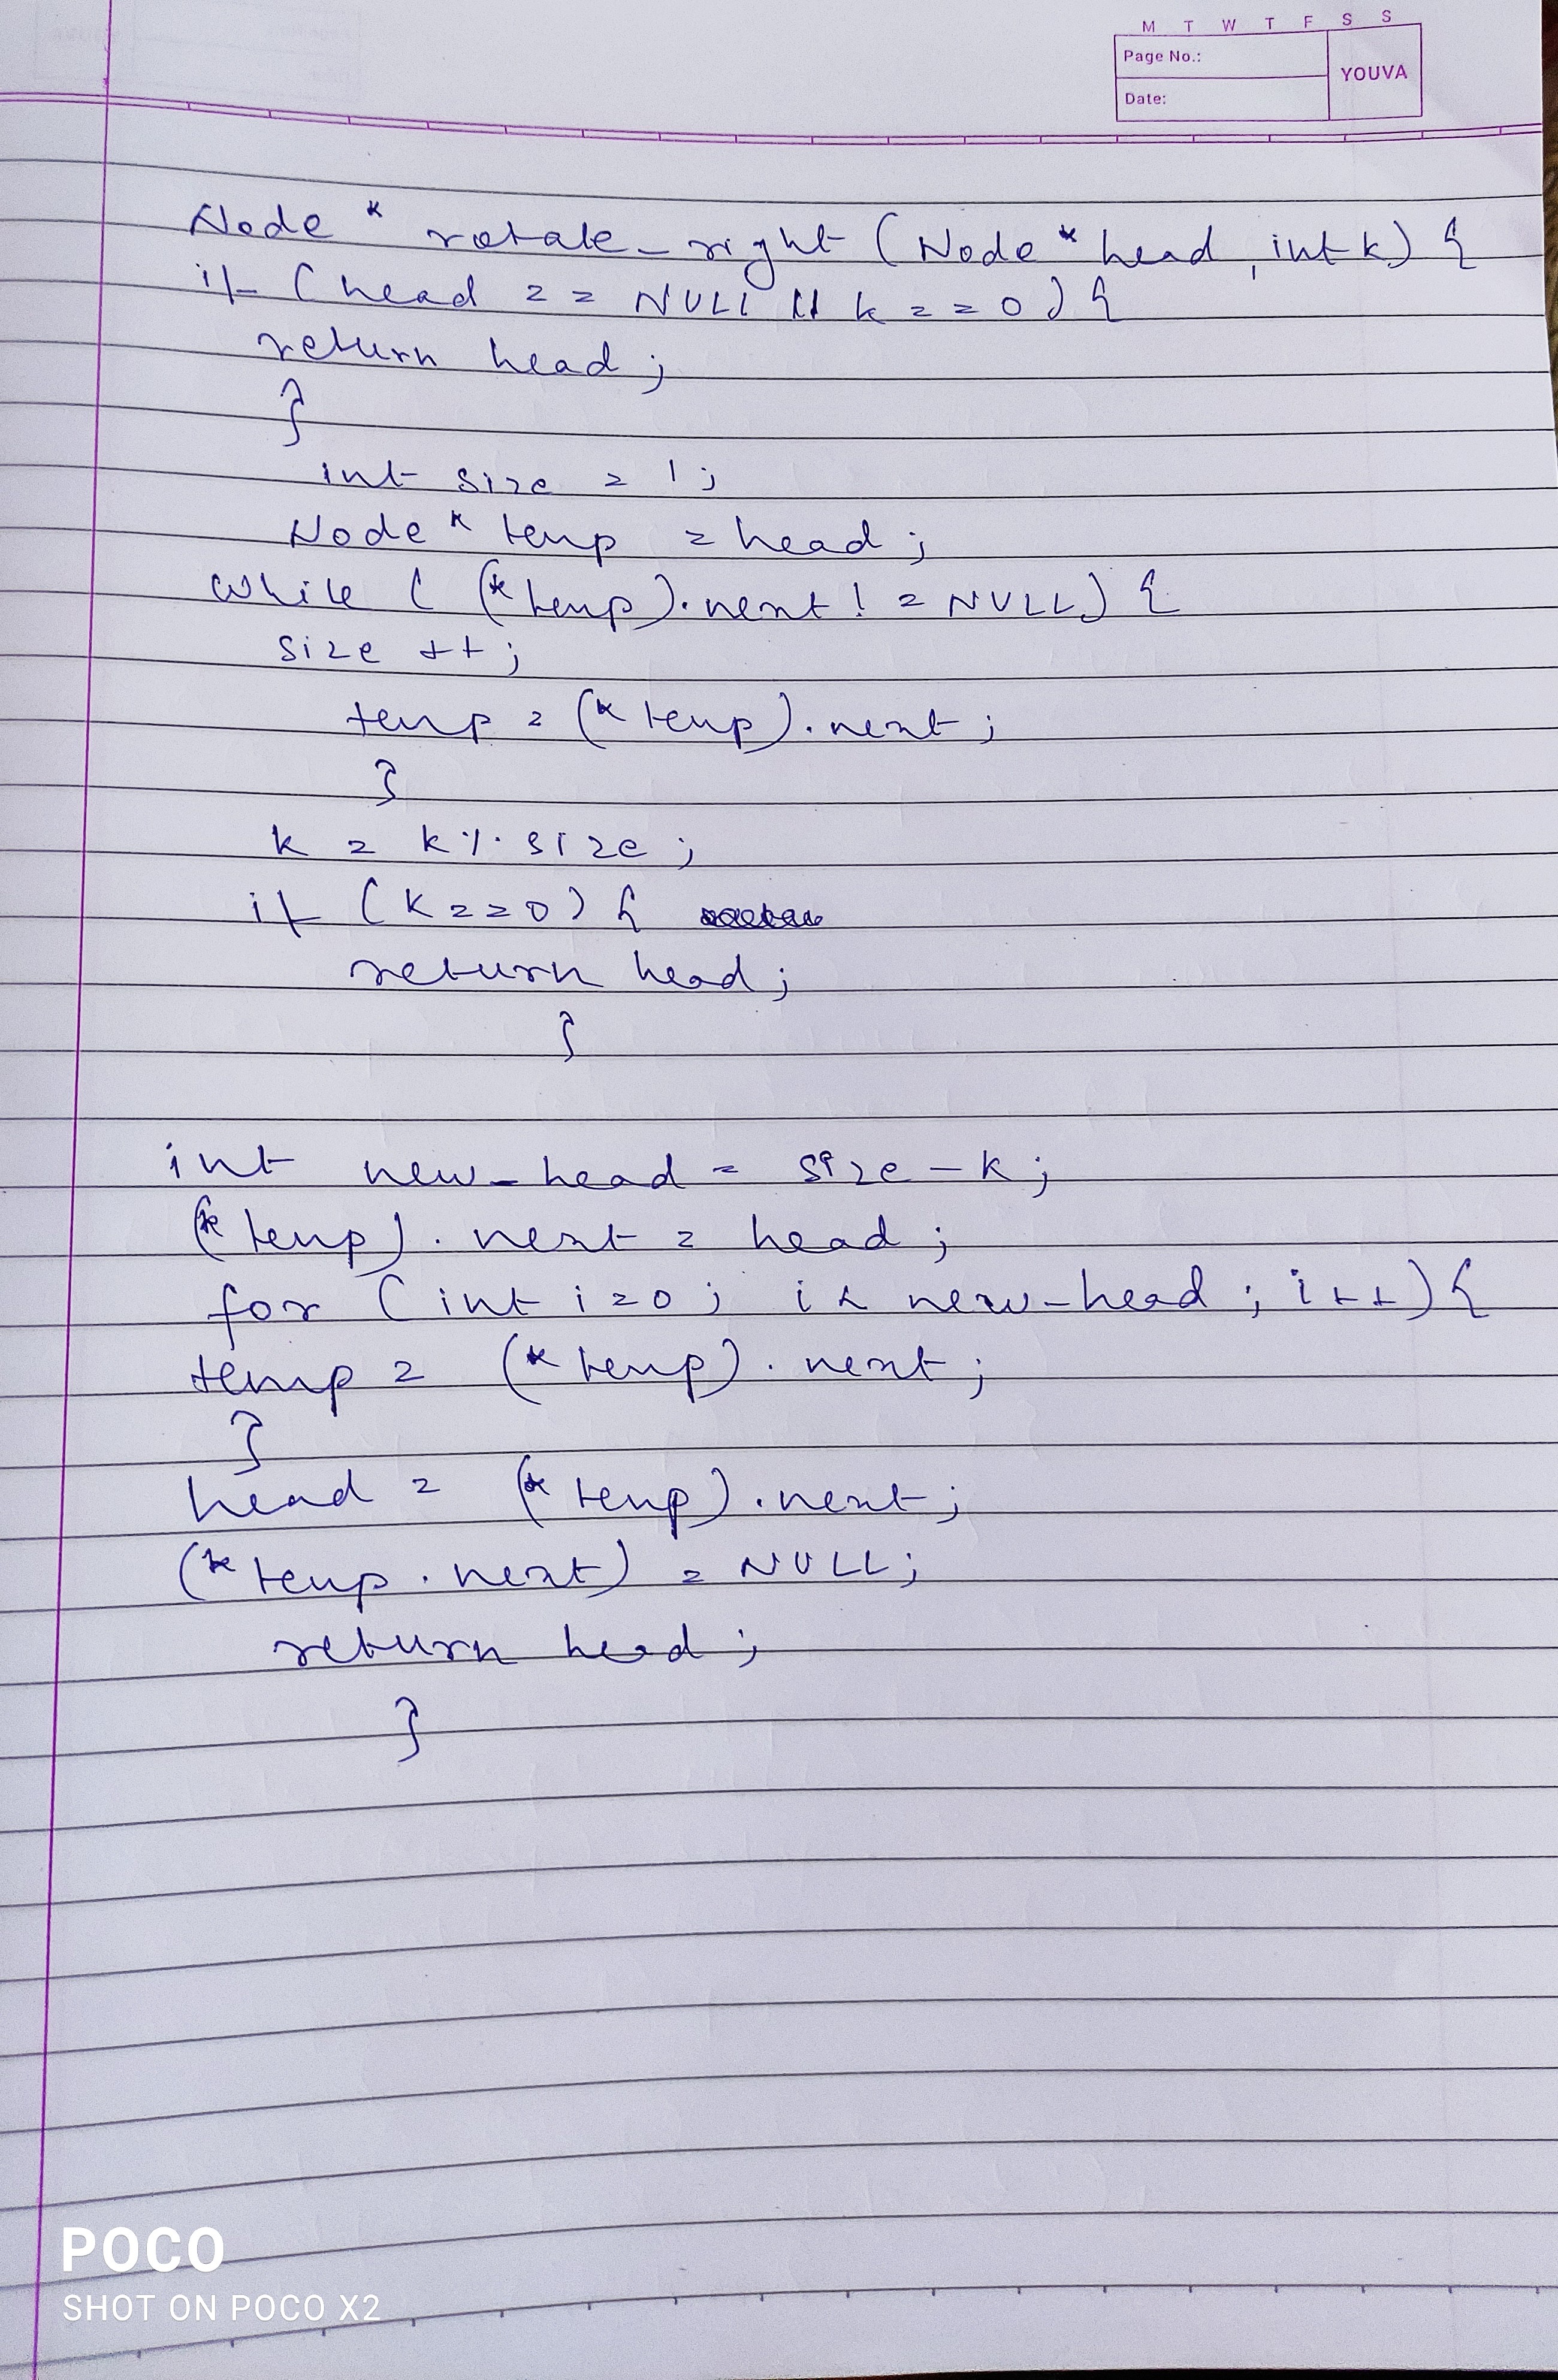 M T W T F S S
Page No.:
YOUVA
Date:
Node * rotate_right (Node * head, int k) {
if (head == NULL || k == 0) {
return head;
}
int size = 1;
Node * temp = head;
while ( (*temp).next != NULL) {
size ++;
temp = (*temp).next;
}
k = k % size;
if (k==0) {
return head;
}
int new_head = size - k;
(*temp).next = head;
for (int i=0; i < new_head; i++) {
temp = (*temp).next;
}
head = (*temp).next;
(*temp.next) = NULL;
return head;
}
POCO
SHOT ON POCO X2